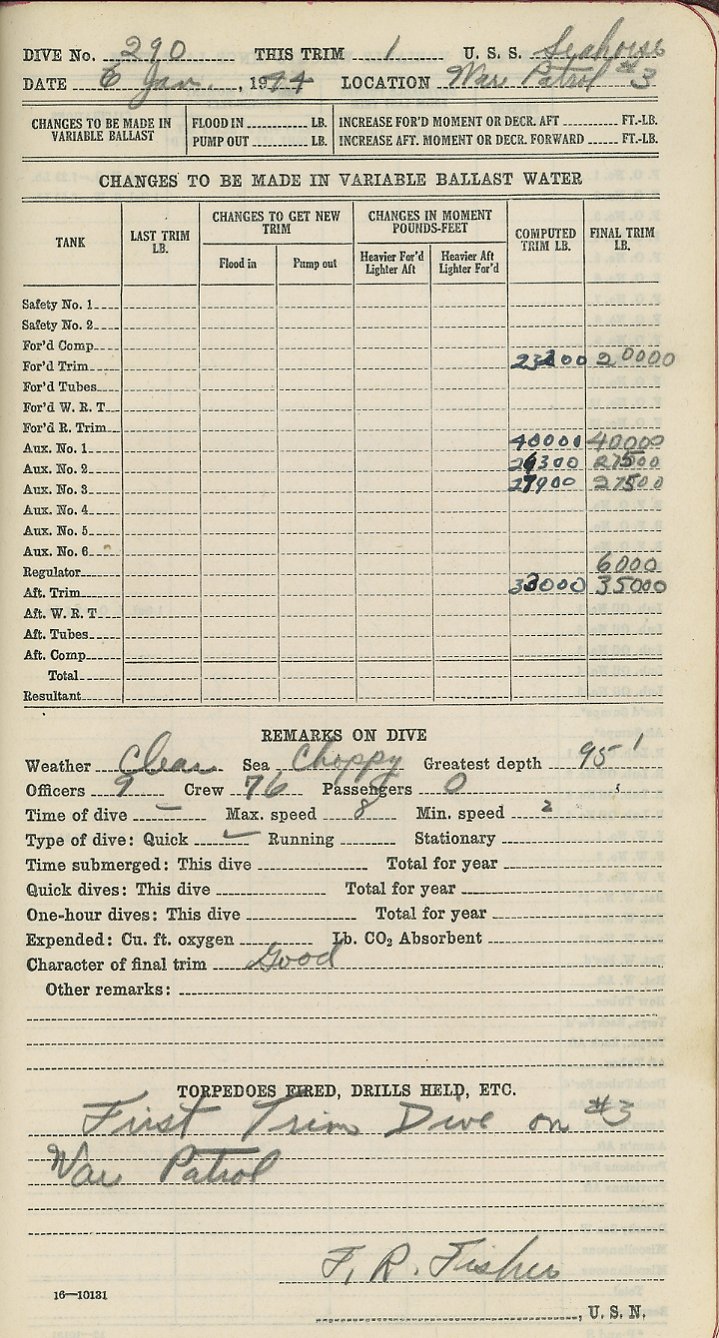 DIVE No. 290 THIS TRIM 1 U. S. S. Seahorse
DATE 6 Jan., 1944 LOCATION War Patrol #3
CHANGES TO BE MADE IN VARIABLE BALLAST
FLOOD IN LB. INCREASE FOR'D MOMENT OR DECR. AFT FT.-LB.
PUMP OUT LB. INCREASE AFT. MOMENT OR DECR. FORWARD FT.-LB.
CHANGES TO BE MADE IN VARIABLE BALLAST WATER
TANK
LAST TRIM LB.
CHANGES TO GET NEW TRIM
Flood in Pump out
CHANGES IN MOMENT POUNDS-FEET
Heavier For'd Lighter Aft
Heavier Aft Lighter For'd
COMPUTED TRIM LB.
FINAL TRIM LB.
Safety No. 1
Safety No. 2
For'd Comp
For'd Trim 20000
For'd Tubes
For'd W. R. T
For'd R. Trim
Aux. No. 1 40000 40000
Aux. No. 2 27500
Aux. No. 3 27900 27500
Aux. No. 4
Aux. No. 5
Aux. No. 6
Regulator 6000
Aft. Trim 33000 35000
Aft. W. R. T
Aft. Tubes
Aft. Comp
Total
Resultant
REMARKS ON DIVE
Weather Clear Sea Choppy Greatest depth 95'
Officers 9 Crew 76 Passengers 0
Time of dive — Max. speed 8 Min. speed 2
Type of dive: Quick ✓ Running Stationary
Time submerged: This dive Total for year
Quick dives: This dive Total for year
One-hour dives: This dive Total for year
Expended: Cu. ft. oxygen Lb. CO₂ Absorbent
Character of final trim Good
Other remarks:
TORPEDOES FIRED, DRILLS HELD, ETC.
First Trim Dive on #3
War Patrol
F. R. Fisher
16—10131
, U. S. N.